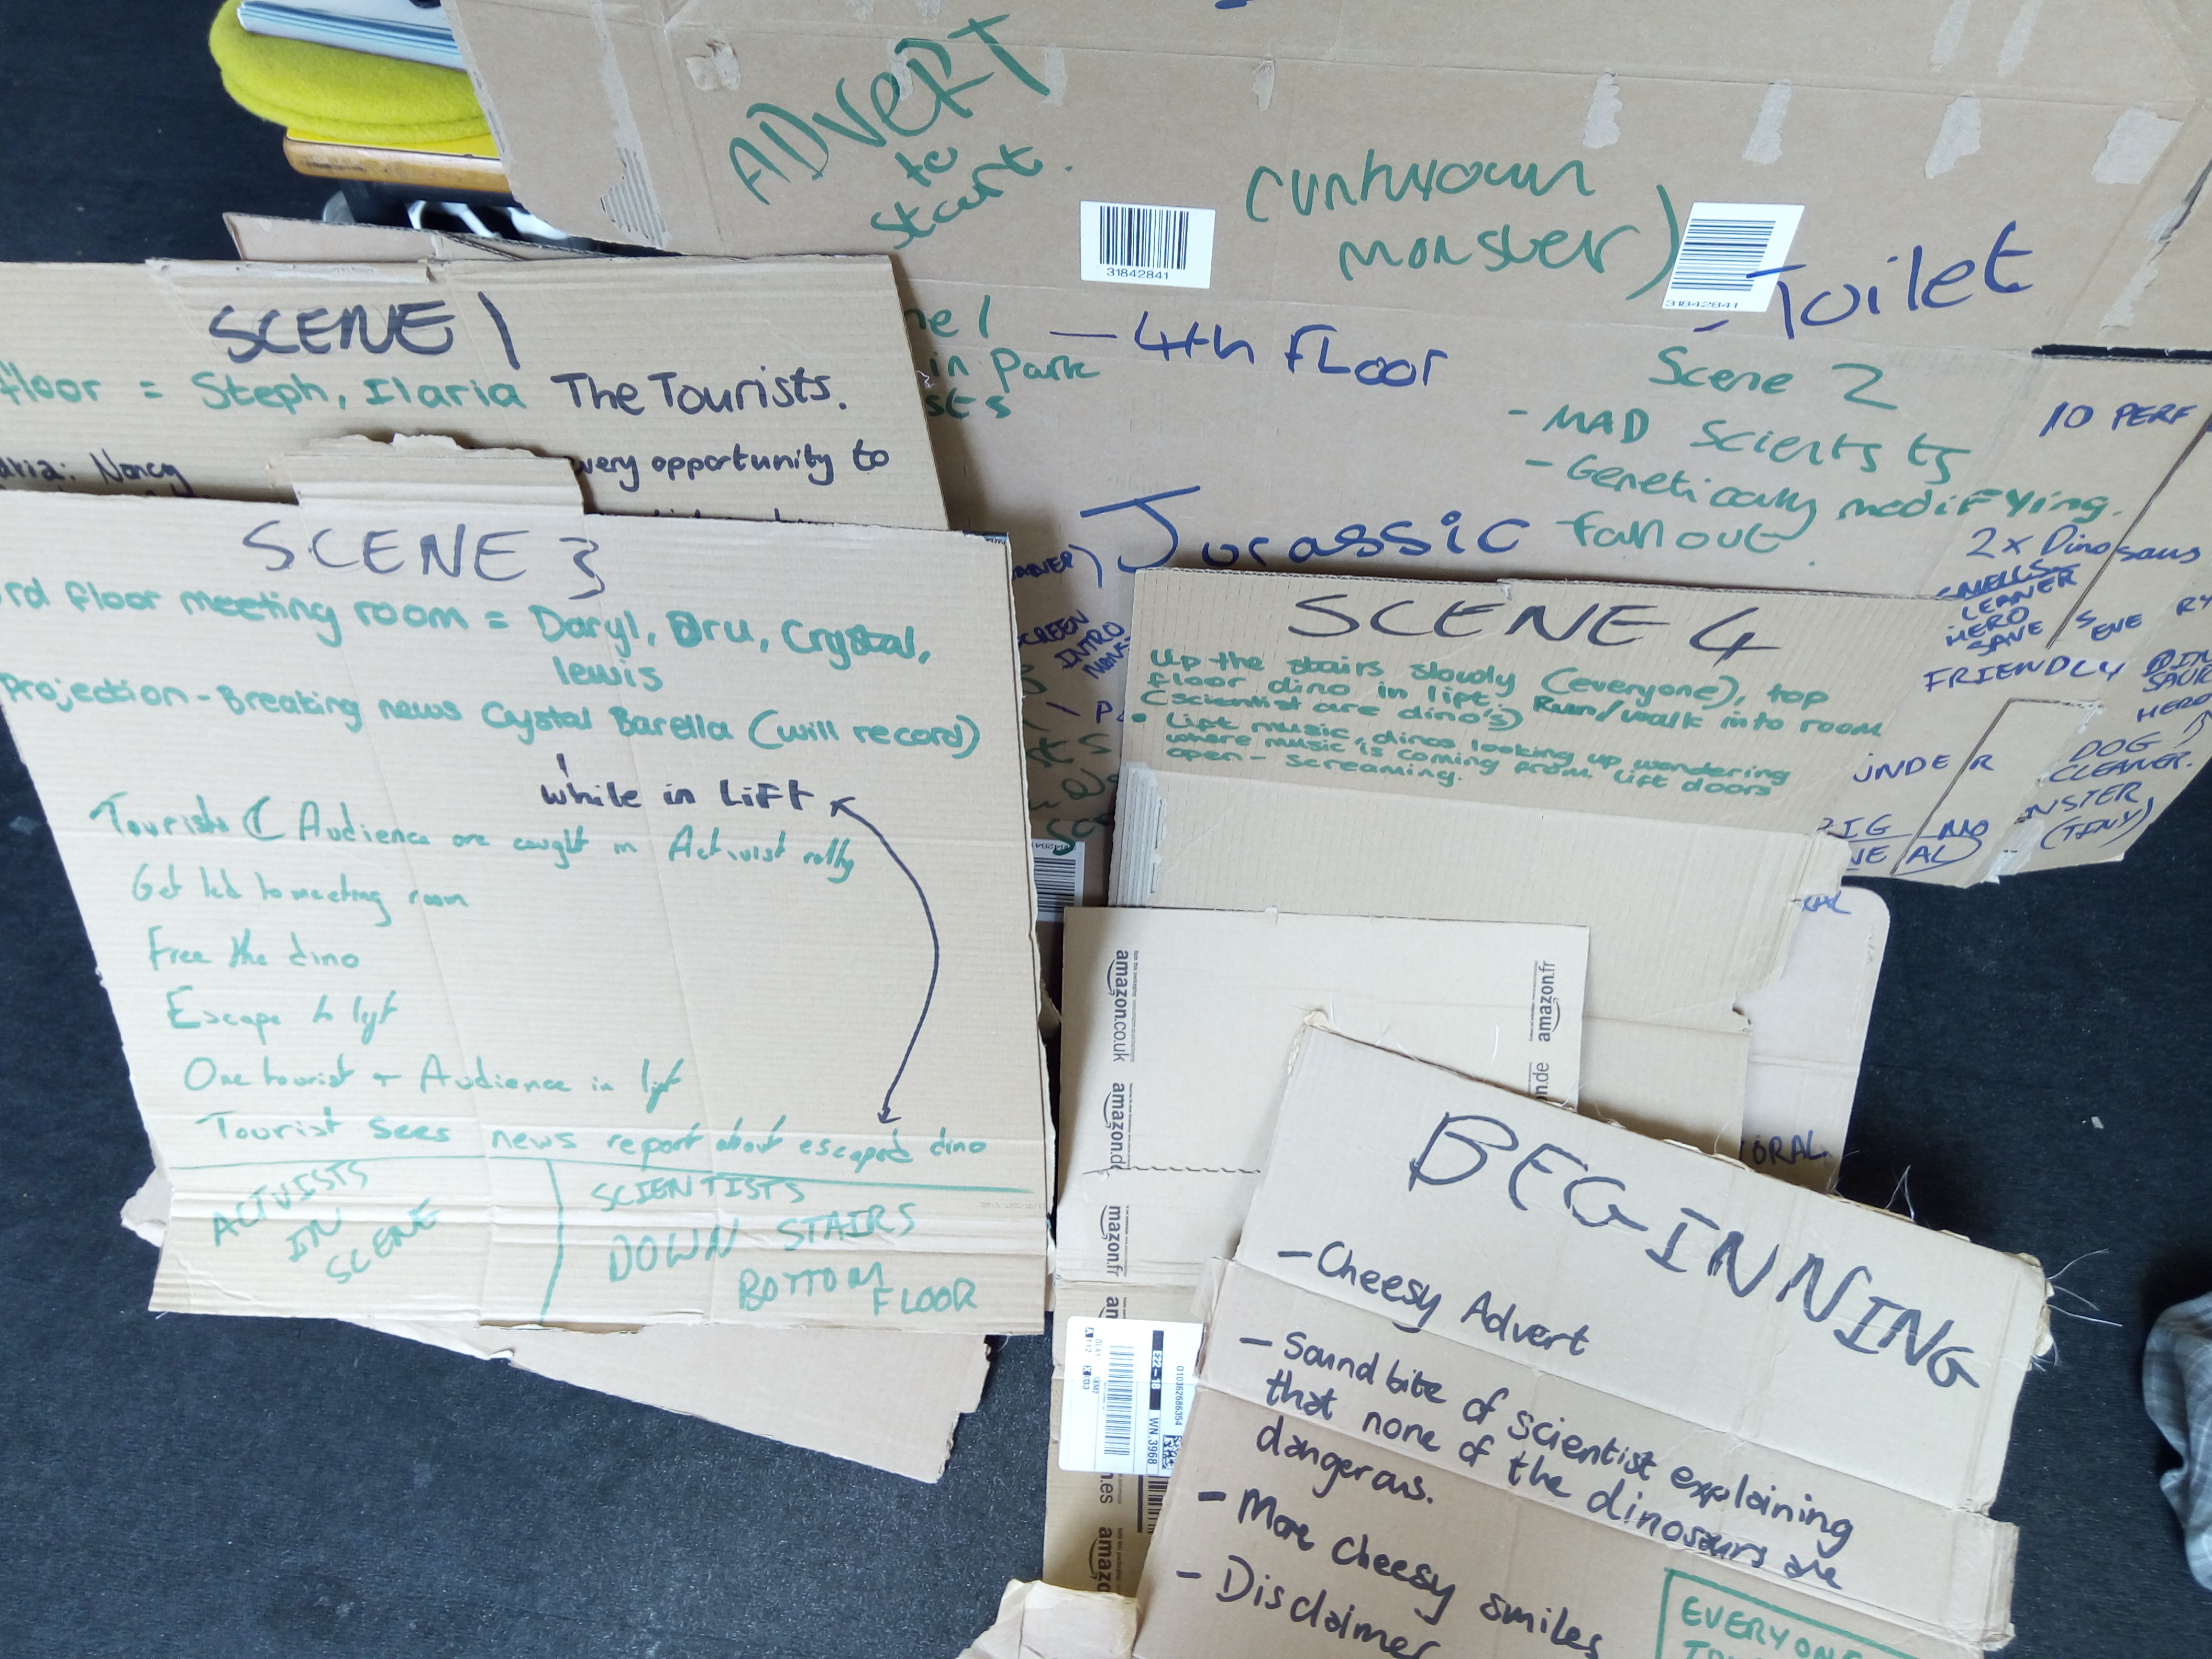 ADVERT
to
start.
(unknown
monster)
31842841
31842841
Toilet
— 4th FLOOR
in Park
Scene 2
- MAD Scientists
- Genetically modifying.
Jurassic fall out.
10 PERF
2 x Dinosaurs
SMELLS
CLEANER
HERO
SAVE
FRIENDLY
HERO
DOG
CLEANER.
(TINY)
SCREEN
INTRO
SCENE 1
floor = Steph, Ilaria The Tourists.
Nancy
very opportunity to
SCENE 3
rd floor meeting room = Daryl, Dru, Crystal,
lewis
Projection - Breaking news Crystal Barella (will record)
while in LIFT
Tourists & Audience are caught in Activist rally
Get led to meeting room
Free the dino
Escape to lift
One tourist + Audience in lift
Tourist sees news report about escaped dino
ACTIVISTS
IN
SCENE
SCIENTISTS
DOWN STAIRS
BOTTOM
FLOOR
SCENE 4
Up the stairs slowly (everyone), top
floor dino in lift. Run/walk into room
(scientist are dino's)
• Lift music, dinos looking up wondering
where music is coming from. Lift doors
open - screaming.
amazon.co.uk
amazon.fr
amazon.de
ORAL
E22-18
WN.3968
BEGINNING
- Cheesy Advert
- Sound bite of scientist explaining
that none of the dinosaurs are
dangerous.
- More cheesy smiles
- Disclaimer
EVERYONE